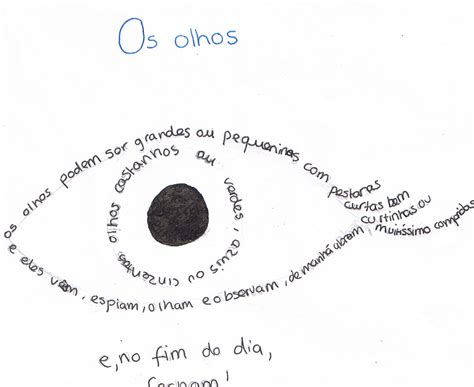 Os olhos
os olhos podem ser grandes ou pequeninos com
pestanas
curtas bem
curtinhas ou
muitíssimo compridas
olhos castanhos ou verdes, azuis ou cinzentos
e eles vêm, espiam, olham e observam, de manhã abrem
e, no fim do dia,
fecham!